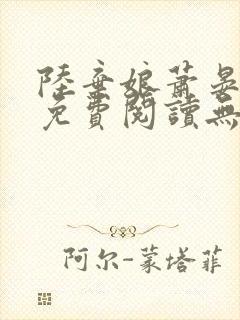 陸棄娘蕭晏
免費閱讀無
阿尔-蒙塔菲